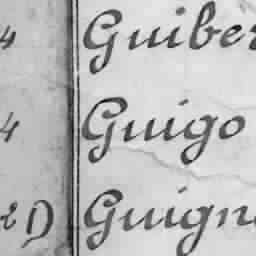 4 Guiber
4 Guigo
2) Guign